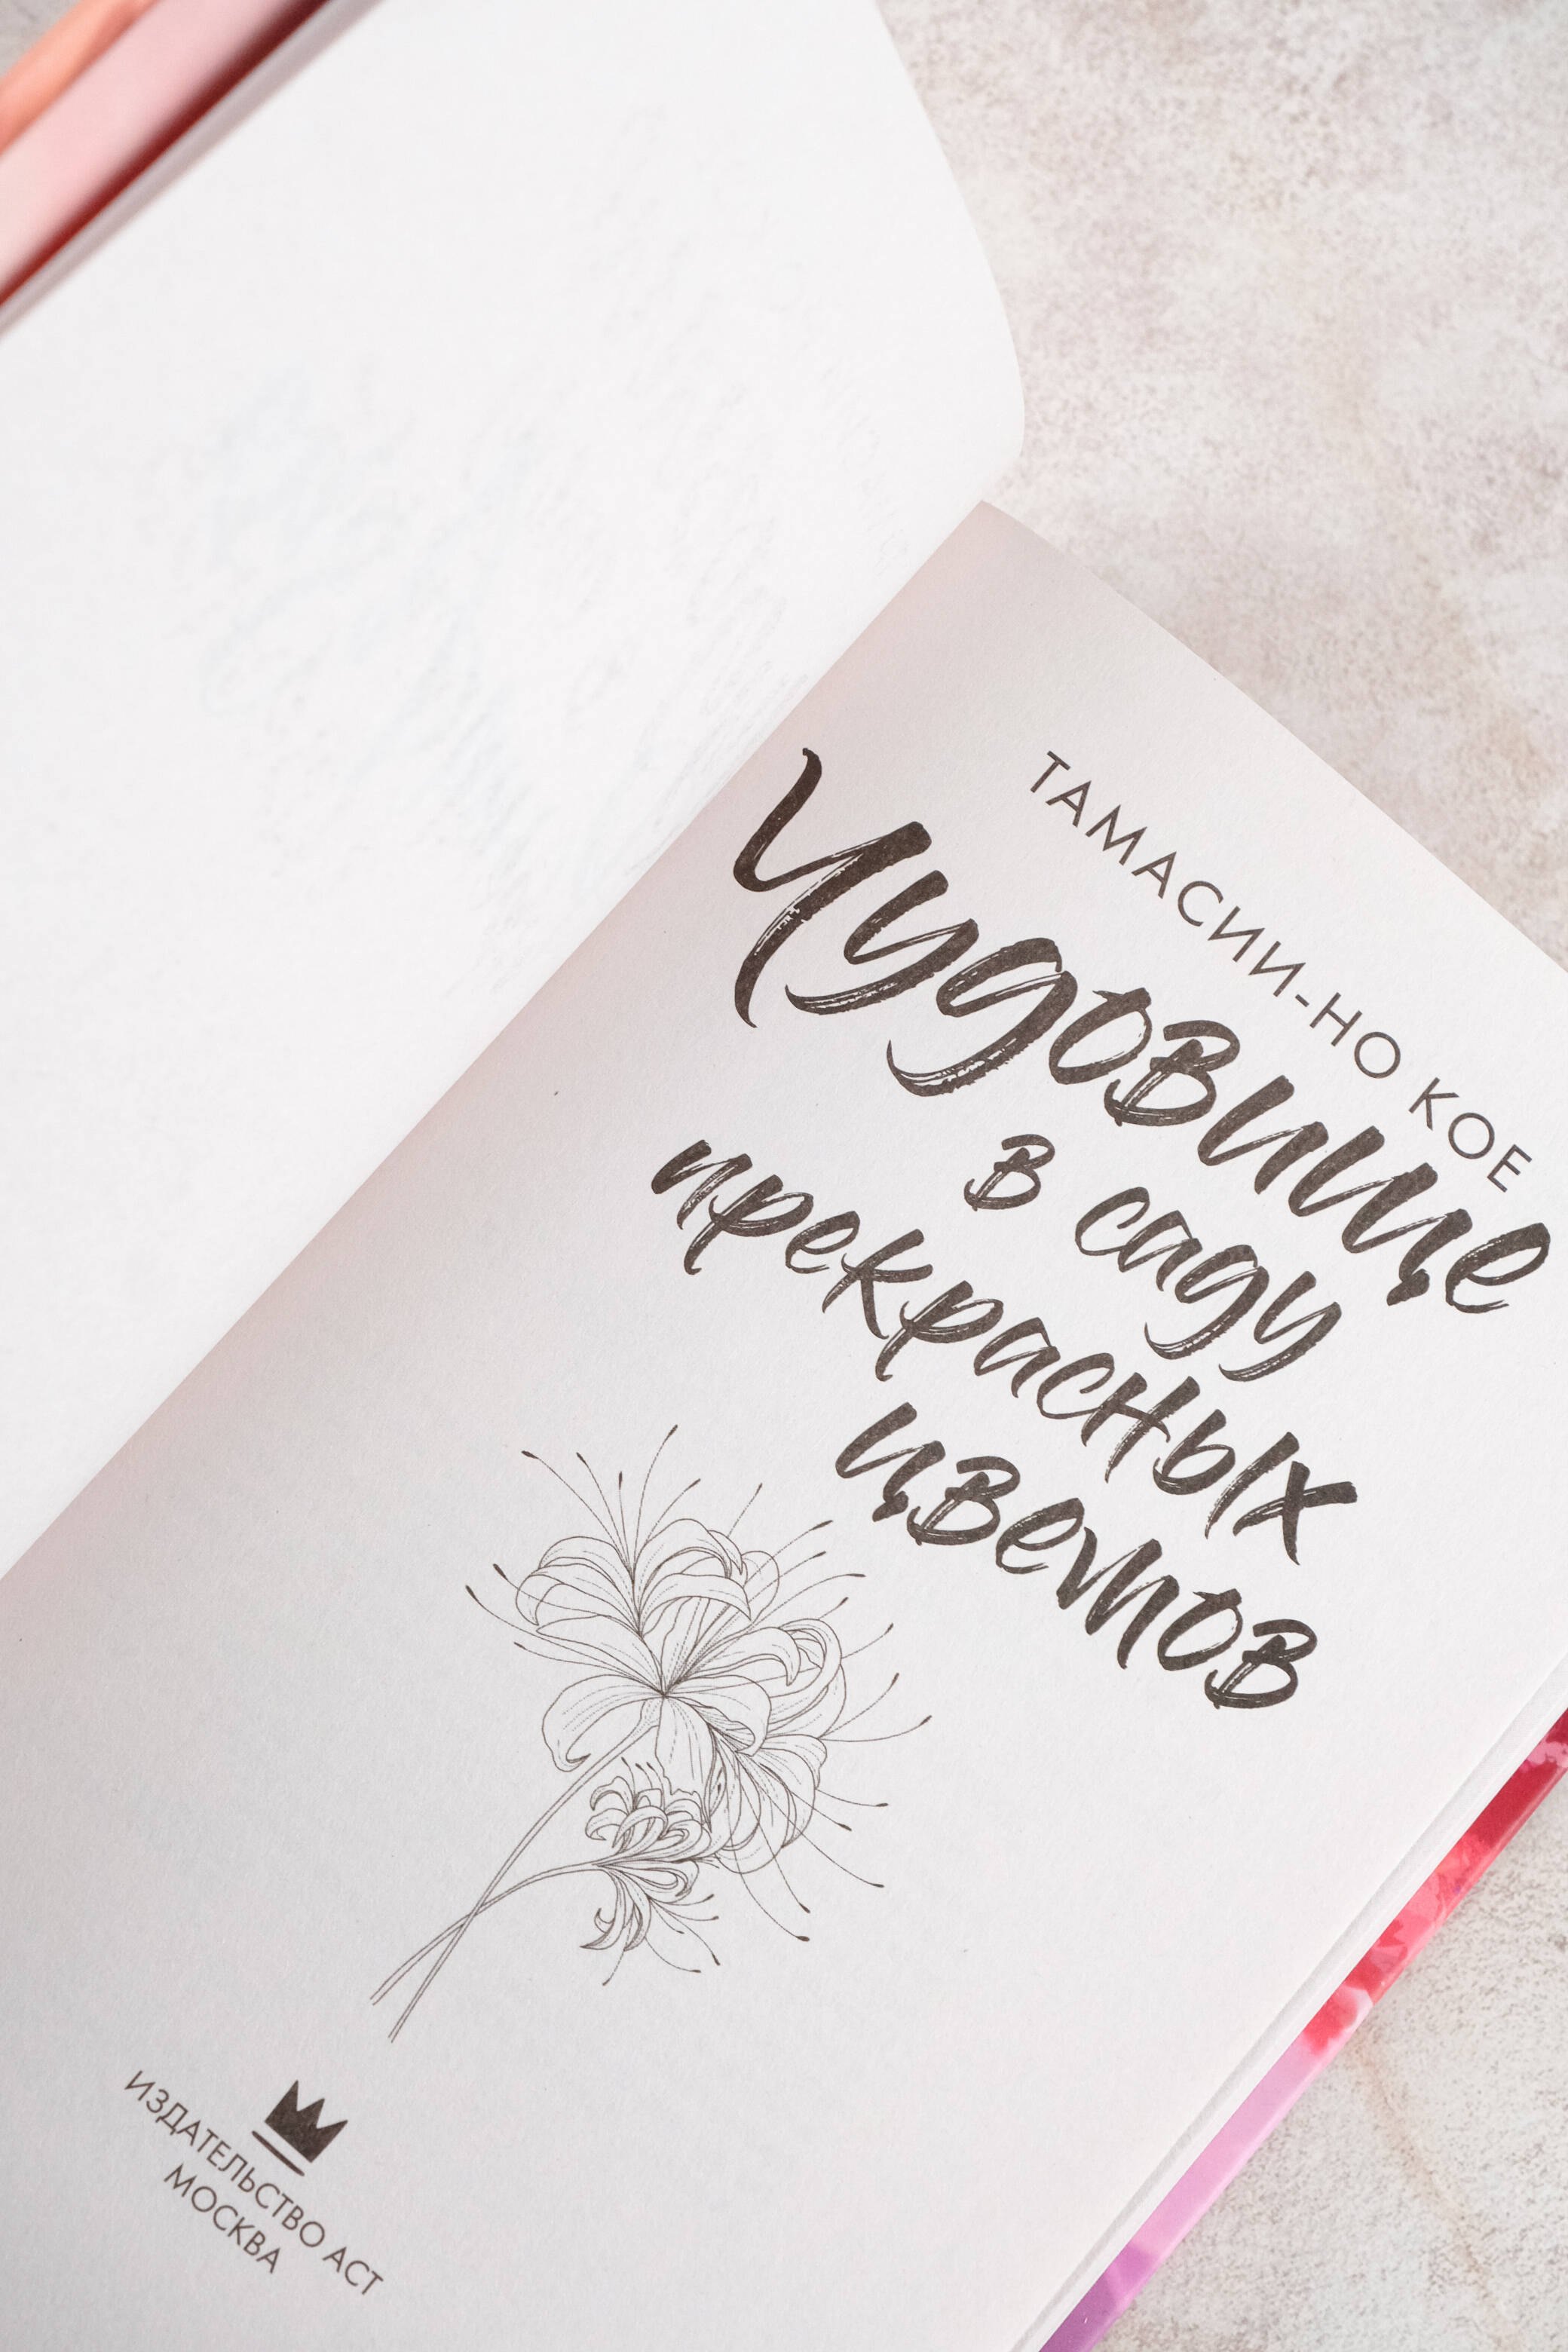 ТАМАСИИ-НО КОЕ
Чудовище
в саду
прекрасных
цветов
ИЗДАТЕЛЬСТВО АСТ
МОСКВА